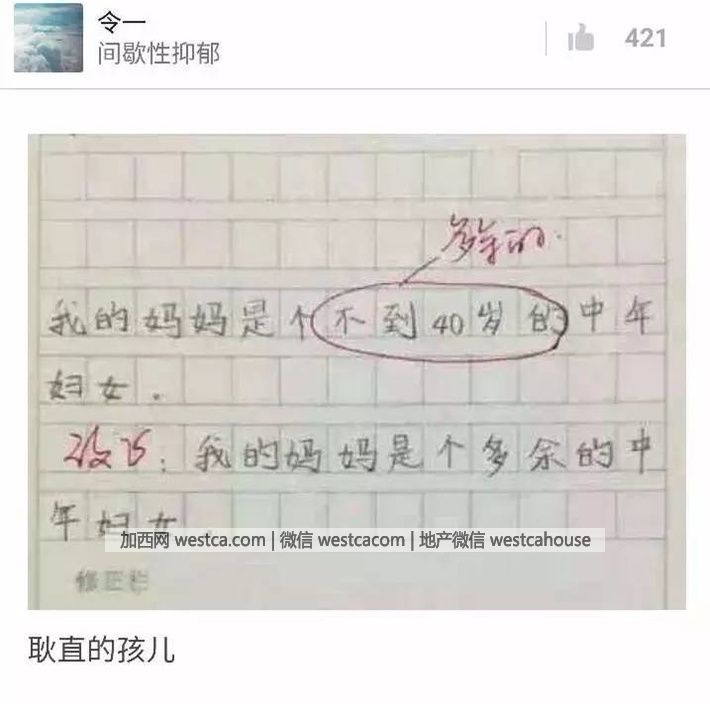 令一
间歇性抑郁
421
多余的.
我的妈妈是个不到40岁的中年
妇女.
改巧:我的妈妈是个多余的中
年妇女
加西网 westca.com | 微信 westcacom | 地产微信 westcahouse
修正栏
耿直的孩儿